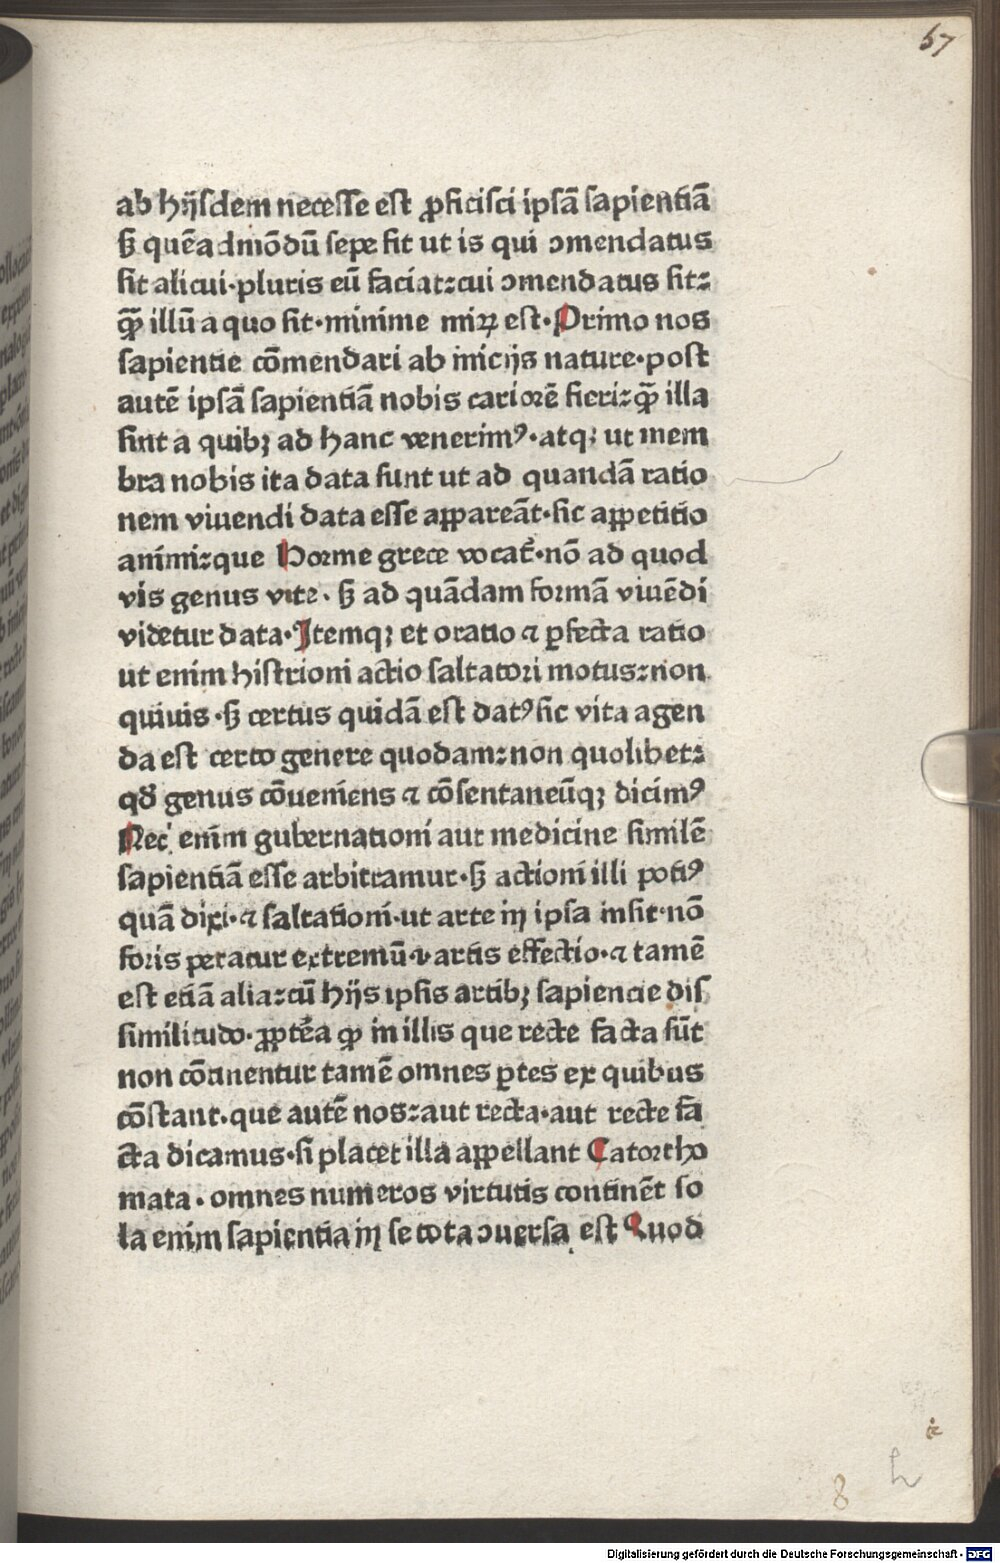 67
ab hijsdem necesse est ꝓficisci ipsā sapientiā
ꝫ quēadmodū sepe fit ut is qui ↄmendatus
sit alicui·pluris eū faciat:cui ↄmendatus sit:
ꝙ̄ illū a quo sit·minime miꝝ est·Primo nos
sapientie cōmendari ab inicijs nature·post
autē ipsā sapientiā nobis cariorē fieri:ꝙ̄ illa
sint a quibꝫ ad hanc venerimꝰ·atqꝫ ut mem
bra nobis ita data sunt ut ad quandā ratio
nem viuendi data esse appareāt·sic appetitio
animi:que Horme grece vocat᷑·nō ad quod
vis genus vite·sꝫ ad quādam formā viuēdi
videtur data·Itemqꝫ et oratio ⁊ ꝑfecta ratio
ut enim histrioni actio saltatori motus:non
quiuis·sꝫ certus quidā est datꝰ sic vita agen
da est certo genere quodam:non quolibet:
qđ genus cōueniens ⁊ cōsentaneūqꝫ dicimꝰ
Nec enim gubernationi aut medicine similē
sapientiā esse arbitramur·sꝫ actioni illi potiꝰ
quā dixi·⁊ saltationi·ut arte in ipsa insit·nō
foris petatur extremū·i·artis effectio·⁊ tamē
est etiā alia:cū hijs ipsis artibꝫ sapiencie dis
similitudo·ꝓpt̄ea ꝙ in illis que recte facta sūt
non cōtinentur tamē omnes ꝑtes ex quibus
cōstant·que autē nos:aut recta·aut recte fa
cta dicamus·si placet illa appellant Catortho
mata·omnes numeros virtutis continēt so
la enim sapientia in se tota ↄuersa est Quod
h
8
Digitalisierung gefördert durch die Deutsche Forschungsgemeinschaft - DFG